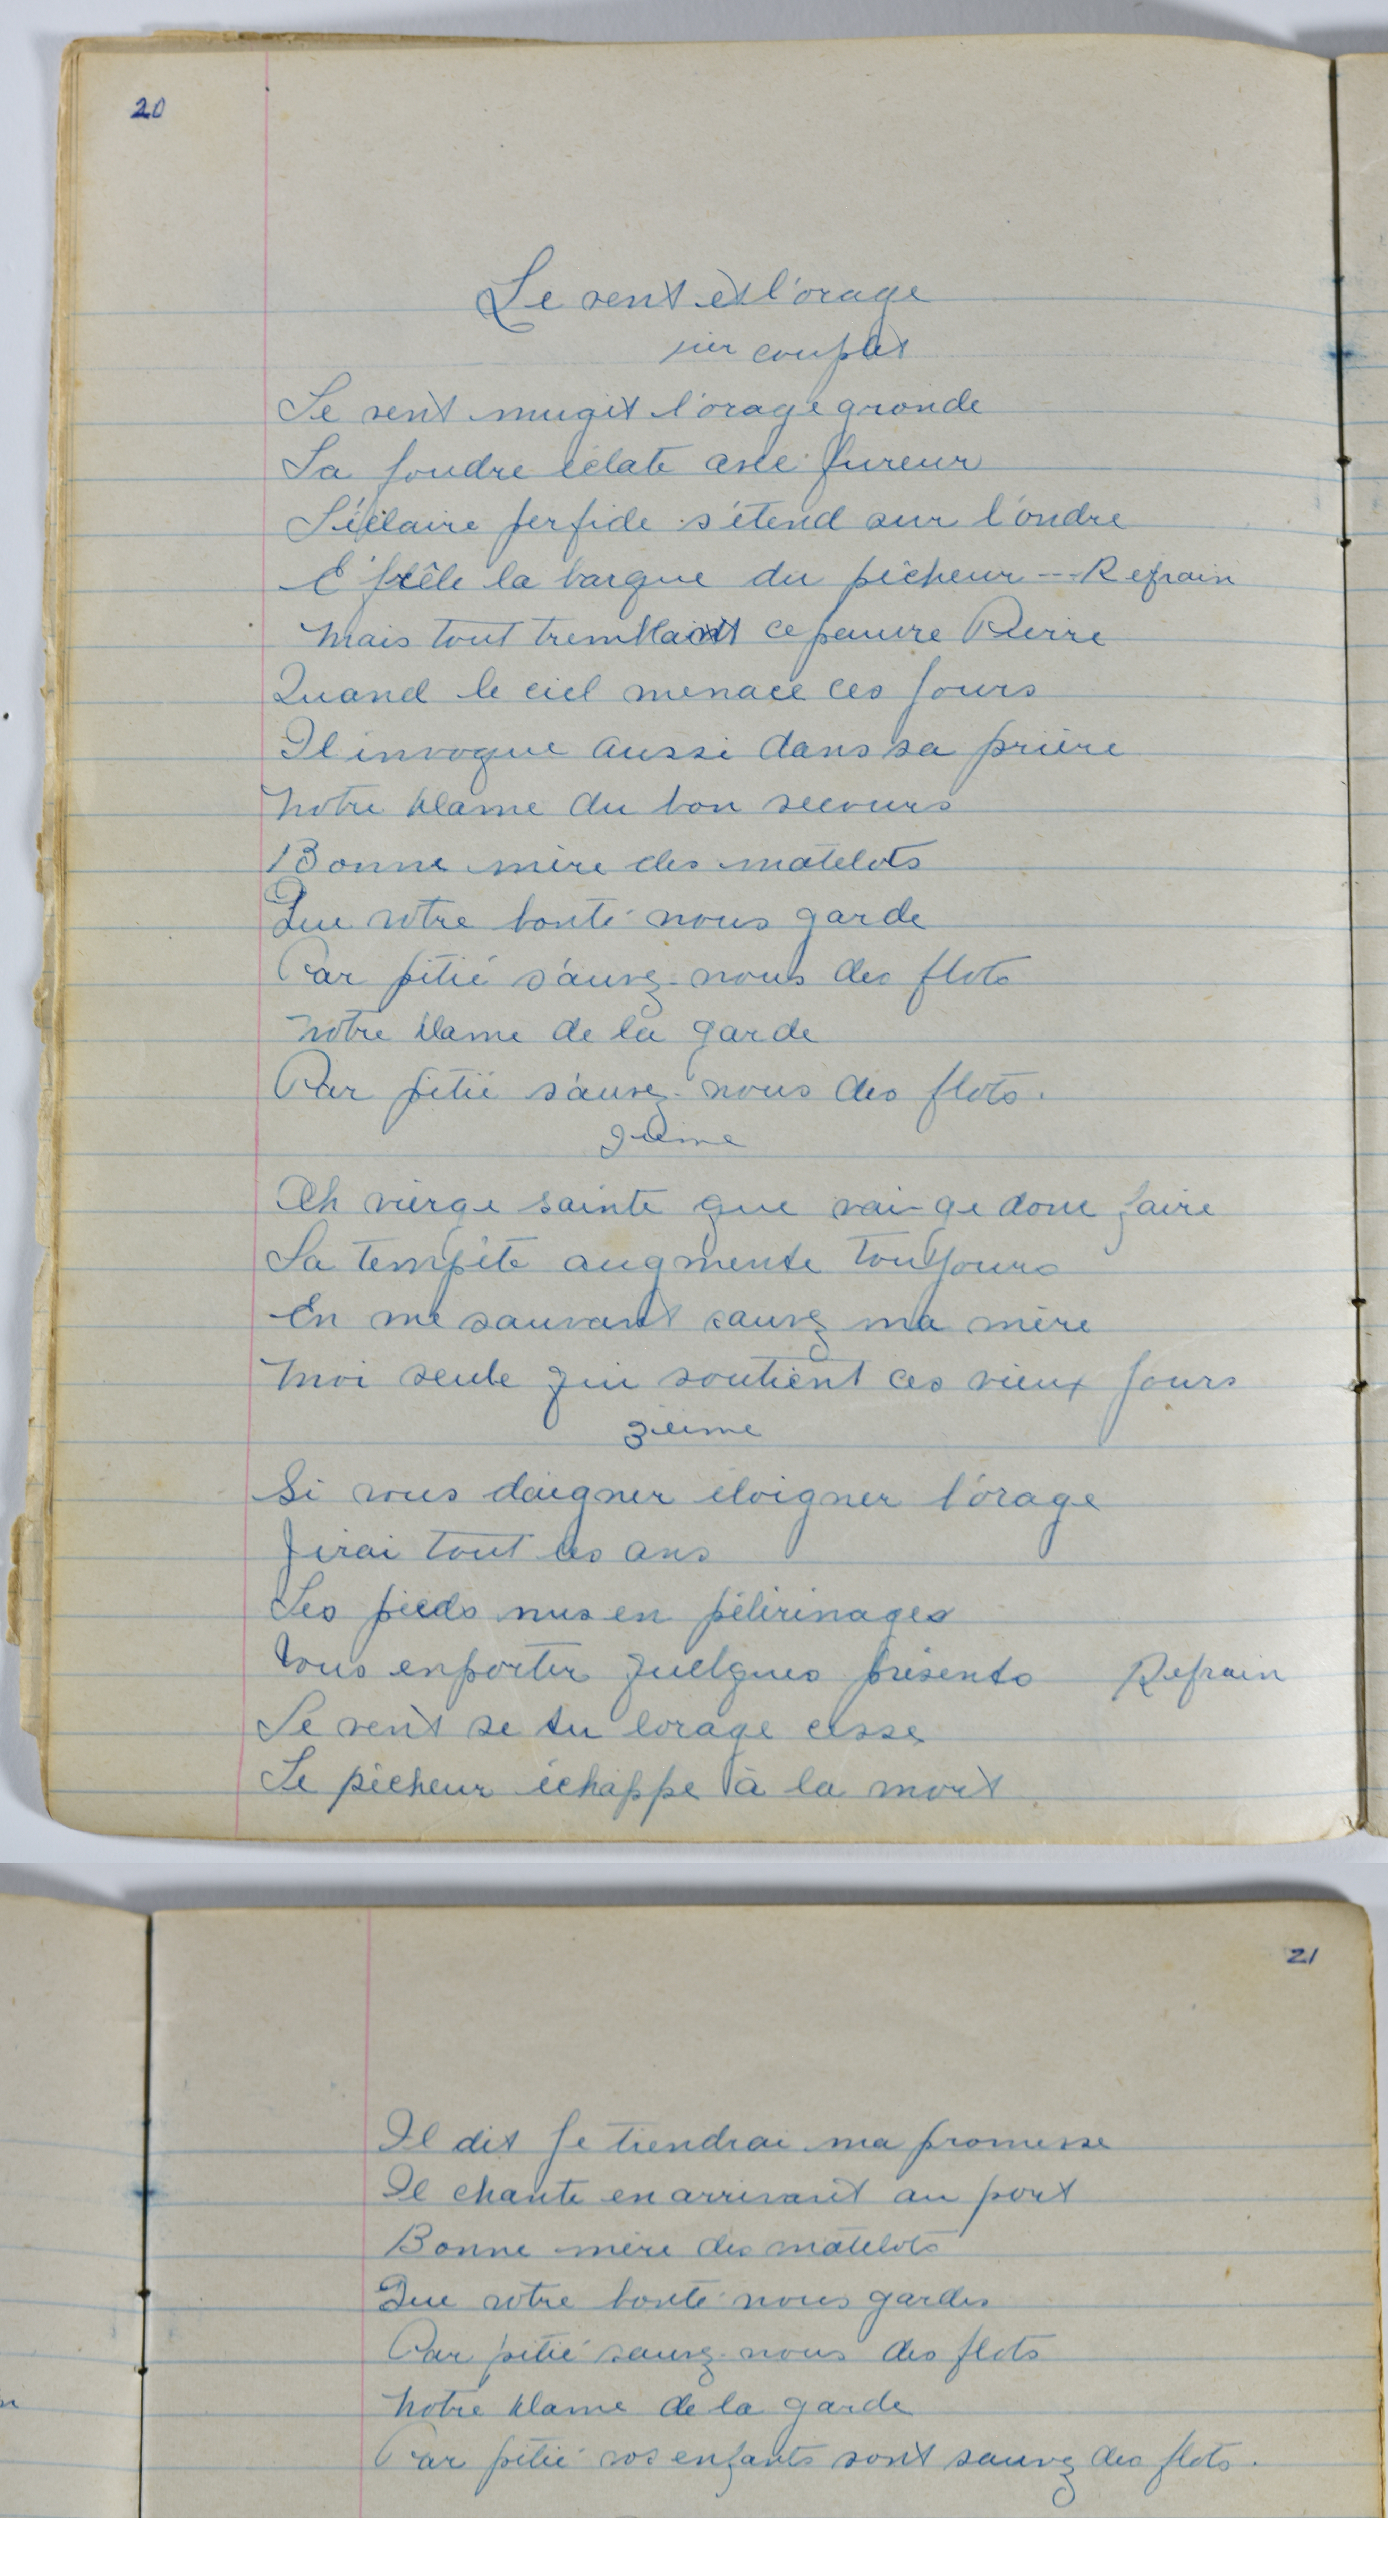 20
Le vent et l'orage
1ier couplet
Le vent mugit l'orage gronde
La foudre éclate avec fureur
L'éclaire perfide s'étend sur l'ondre
E frêle la barque du pêcheur -- Refrain
Mais tout tremblant ce pauvre Pierre
Quand le ciel menace ces jours
Il invoque aussi dans sa prière
Notre Dame du bon secours
Bonne mère des matelots
Que votre bonté nous garde
Par pitié sauvez-nous des flots
Notre Dame de la garde
Par pitié sauvez-nous des flots.
2ième
Ah vierge sainte que vai-ge donc faire
La tempête augmente toujours
En me sauvant sauvez ma mère
Moi seule qui soutient ces vieux jours
3ième
Si vous daigner éloigner l'orage
J'irai tout les ans
Les pieds nus en pélérinages
Vous enporter quelques présents Refrain
Le vent se tu lorage cesse
Le pêcheur échappe à la mort
21
Il dit je tiendrai ma promesse
Il chante en arrivant au port
Bonne mère des matelots
Que votre bonté nous gardes
Par pitié sauvez-nous des flots
Notre Dame de la garde
Par pitié vos enfants sont sauvez des flots.